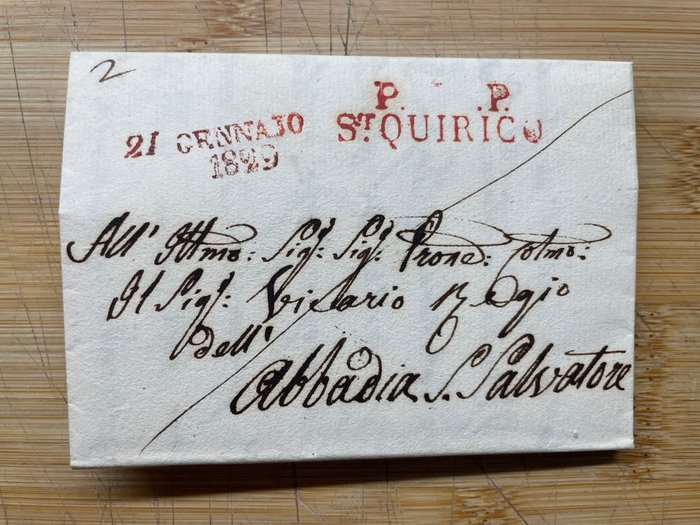 2
P. P.
Sᵗ. QUIRICO
21 GENNAJO
1829
All' Illmo: Sigʳ: Sigʳ: Prone: Colmo:
Il Sigʳ: Vicario Regio
dell'
Abbadia S. Salvatore